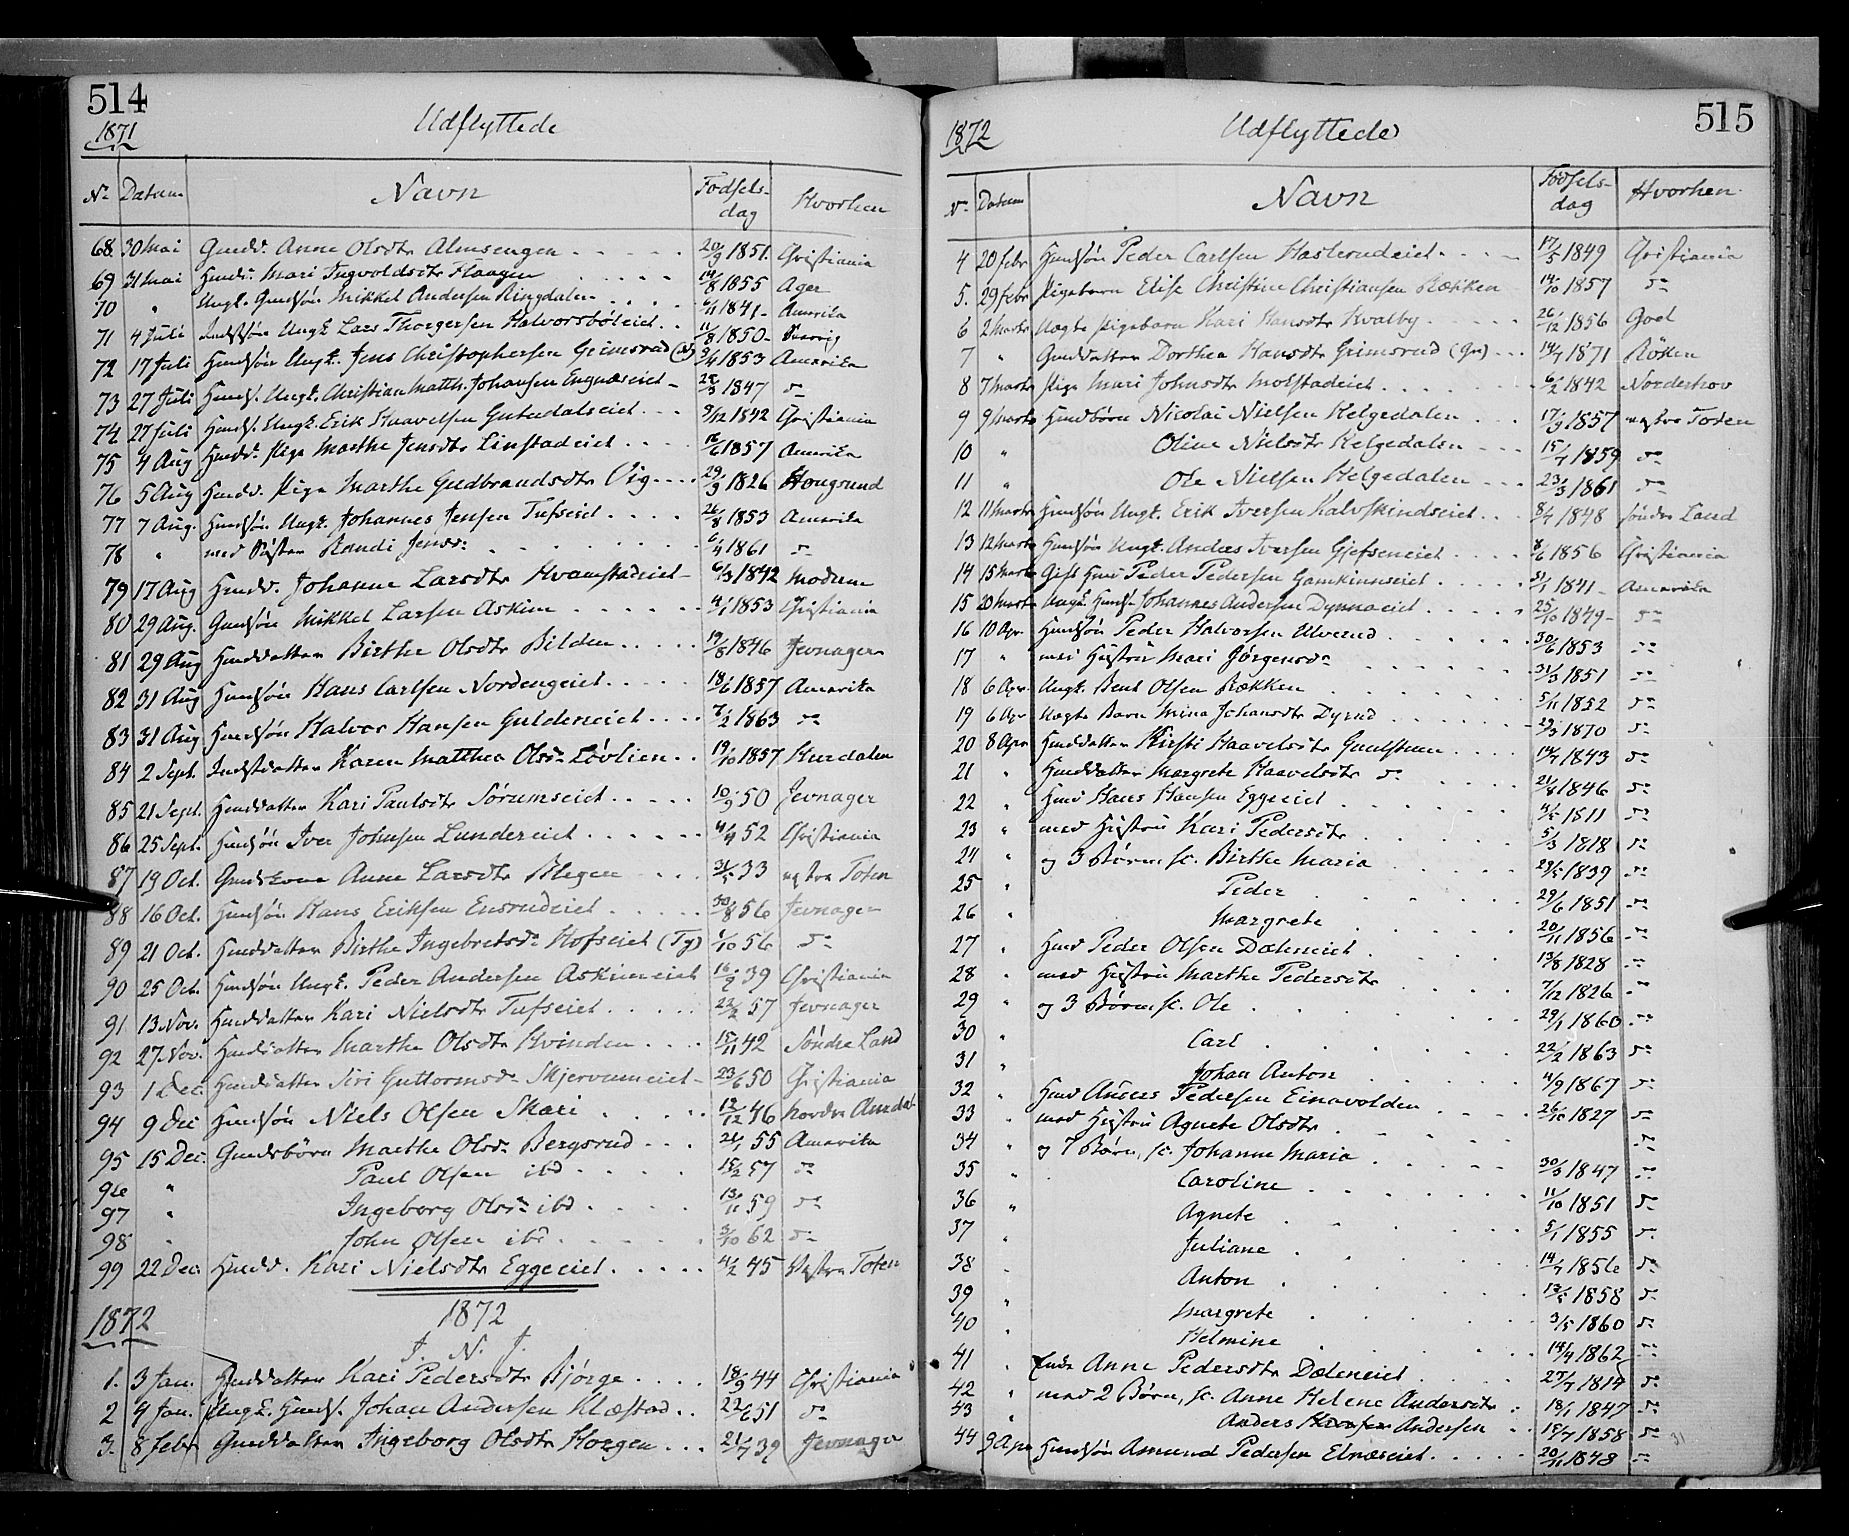 514
1871
Udflyttede
No Datum Navn Fødsels-dag Hvorhen
68 30 Mai Gmdd. Anne Olsdtr Almsengen 20/9 1851 Christiania
69 31 Mai Hmd: Mari Ingvoldsdtr Haagen 14/8 1855 Ager
70 " Ungk. Gmdsøn Mikkel Andersen Ringdalen 6/11 1841 Amerika
71 4 Juli Indstsøn Ungk Lars Thorgersen Halvorsbøleiet 11/8 1850
72 17 Juli Hmdsøn Ungk. Jens Christophersen Grimsrud 9/4 1853 Amerika
73 27 Juli Hmds. Ungk. Christian Matth. Johansen Engnæseiet 1847 do
74 27 Juli Hmds. Ungk. Erik Haavelsen Gutudalseiet 9/12 1842 Christiania
75 4 Aug Hmdd. Pige Marthe Jensdtr Linstadeiet 1857 Amerika
76 5 Aug Hmdd. Pige Marthe Gudbrandsdtr Vig 29/3 1826 Hougsund
77 7 Aug. Hmdsøn Ungk. Johannes Jensen Tufseiet 26/8 1853 Amerika
78 " med Søster Randi Jensd: 6/4 1861 do
79 17 Aug Hmdd. Johanne Larsdtr Hvamstadeiet 6/3 1842 Modum
80 29 Aug. Gmdsøn Mikkel Larsen Askim 4/1 1853 Christiania
81 29 Aug Hmddatter Birthe Olsdtr Bilden 19/8 1846 Jevnager
82 31 Aug Hmdsøn Hans Carlsen Nordengeiet 18/6 1857 Amerika
83 31 Aug Hmdsøn Halvor Hansen Guldeneiet 7/2 1863 do
84 2 Sept. Indstdatter Karen Matthea Olsdr Løvlien 19/10 1857 Hurdalen
85 21 Sept. Hmddatter Kari Paulsdtr Sørumseiet 10/9 50 Jevnager
86 25 Sept. Hmdsøn Iver Johnsen Lundereiet 4/4 52 Christiania
87 19 Oct. Gmdskone Anne Larsdtr Blegen 33 vestre Toten
88 16 Oct. Hmdsøn Hans Eriksen Ensrudeiet 30/8 56 Jevnager
89 21 Oct. Hmddatter Birthe Ingebretsdr Hofseiet (Ty) 1/10 56 do
90 25 Oct. Hmdsøn Ungk. Peder Andersen Askimeiet 16/9 39 Christiania
91 13 Nov. Hmddatter Kari Nielsdtr Tufseiet 22/2 57 Jevnager
92 27 Nov. Hmddatter Marthe Olsdtr Hvinden 15/11 42 Søndre Land
93 1 Dec. Hmddatter Siri Guttormsdr Skjervumeiet 23/6 50 Christiania
94 9 Dec Hmdsøn Niels Olsen Skari 12/12 46 Nordre
95 15 Dec. Gmdsbørn Marthe Olsdr Bergsrud 55 Amerika
96 " Paul Olsen ibd 15/2 57 do
97 " Ingeborg Olsdr ibd 13/11 59 do
98 " John Olsen ibd 3/10 62 do
99 22 Dec. Hmdd. Kari Nielsdtr Eggeeiet 4/2 45 Vestre Toten
1872
1872
J. N. J.
1. 3 Jan. Gmddatter Kari Pedersdtr Bjørge 18/9 44 Christiania
2 4 Jan. Ungk. Hmds. Johan Andersen Klæstad 22/6 51 do
3. 8 Febr Gmddatter Ingeborg Olsdtr Horgen 39 Jevnager
515
1872
Udflyttede
No Datum Navn Fødsels-dag Hvorhen
4 20 febr Hmdsøn Peder Carlsen Haslerudeiet 17/5 1849 Christiania
5. 29 febr Pigebarn Elise Christine Christiansen Rækken 14/10 1857 do
6 2 Marts Uægte Pigebarn Kari Hansdtr Hvalby 26/12 1856 Goel
7 " Gmddatter Dorthea Hansdtr Grimsrud (Gr) 14/7 1871 Røken
8 7 Marts Pige Mari Johnsdtr Molstadeiet 6/2 1842 Norderhov
9 9 Marts Hmdbørn Nicolai Nielsen Helgedalen 17/9 1857 vestre Toten
10 " Oline Nielsdtr Helgedalen 15/7 1859 do
11 " Ole Nielsen Helgedalen 23/3 1861 do
12 11 Marts Hmdsøn Ungk. Erik Iversen Kalvskindseiet 8/7 1848 Søndre Land
13 12 Marts Hmdsøn Ungk. Anders Iversen Gjefseneiet 8/6 1856 Christiania
14 15 Marts Gift Hmd Peder Pedersen Gamkinneiet 31/1 1841 Amerika
15 20 Marts Ungk. Hmds. Johannes Andersen Dynnaeiet 25/10 1849 do
16 10 Apr. Hmdsøn Peder Halvorsen Ulverud 30/6 1853 do
17 " med Hustru Mari Jørgensdr 31/3 1851 do
18 6 Apr. Ungk. Bent Olsen Rækken 5/11 1852 do
19 6 Apr Uægte Barn Mina Johansdtr Dyrud 29/3 1870 do
20 8 Apr Hmddatter Kirsti Haavelsdtr Gaulstuen 14/7 1843 do
21 " Hmddatter Margrete Haavelsdtr do 21/8 1846 do
22 " Hmd Hans Hansen Eggeeiet 1811 do
23 " med Hustru Kari Pedersdtr 5/3 1818 do
24 " og 3 Børn, sc. Birthe Maria 1839 do
25 " Peder 29/6 1851 do
26 " Margrete 20/11 1856 do
27 " Hmd Peder Olsen Dæleneiet 13/8 1828 do
28 " med Hustru Marthe Pedersdtr 7/12 1826 do
29 " og 3 Børn, sc. Ole 29/1 1860 do
30 " Carl 22/2 1863 do
31 " Johan Anton 4/9 1867 do
32 " Hmd Anders Pedersen Einavolden 26/10 1827 do
33 " med Hustru Agnete Olsdtr do
34 " og 7 Børn, sc. Johanne Maria 30/3 1847 do
35 " Caroline 11/10 1851 do
36 " Agnete 5/1 1855 do
37 " Juliane 14/7 1856 do
38 Anton 13/5 1858 do
39 " Margrete 3/5 1860 do
40 " Helmine 14/4 1862 do
41 " Enke Anne Pedersdtr Dæleneiet 27/7 1814 do
42 " med 2 Børn, sc. Anne Helene Andersdtr 18/1 1847 do
43 " Anders Andersen 15/7 1858 do
44 9 Apr Hmdsøn Amund Pedersen Elnæseiet 20/11 1848 do
31